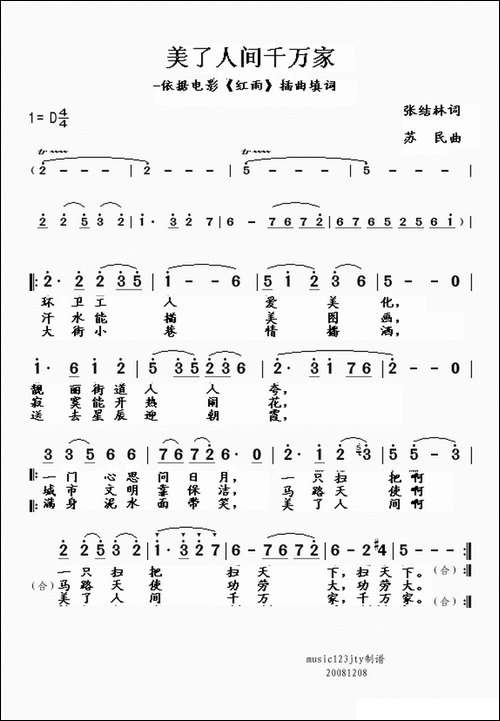 美了人间千万家
-依据电影《红雨》插曲填词
1=D4/4
张结林词
苏 民曲
(2 - - - | 2 - - - | 5 - - - | 5 - - - |
2 2 5 3 2 | 1· 3 2 7 | 6 - 7 6 7 2 | 6 7 6 5 2 5 6 1)
‖: 2· 2 2 3 5 | 1 - - 6 | 5 1 2 3 6 | 5 - - 0 |
环卫工 人 爱美化,
汗水能 描 美图画,
大街小 巷 情播洒,
1· 6 1 2 | 5 3 5 2 3 6 | 2· 3 1 7 6 | 2 - - 0 |
靓丽街道人人夸,
寂寞能开热闹花,
送去星辰迎朝霞,
3 3 5 6 6 | 7 6 7 2 6· 0 | 2· 3 1 2 | 5 5 - 3 |
一门心思问日月, 一只扫把啊
城市文明靠保洁, 马路天使啊
满身泥水面带笑, 美了人间啊
2 2 5 3 2 | 1· 3 2 7 | 6 - 7 6 7 2 | 6 - 2 4 | 5 - - - :‖
一只扫把 扫天下,扫天下。(合)
(合) 马路天使 功劳大,功劳大。
美了人间 千万家,千万家。(合)
music123jty制谱
20081208